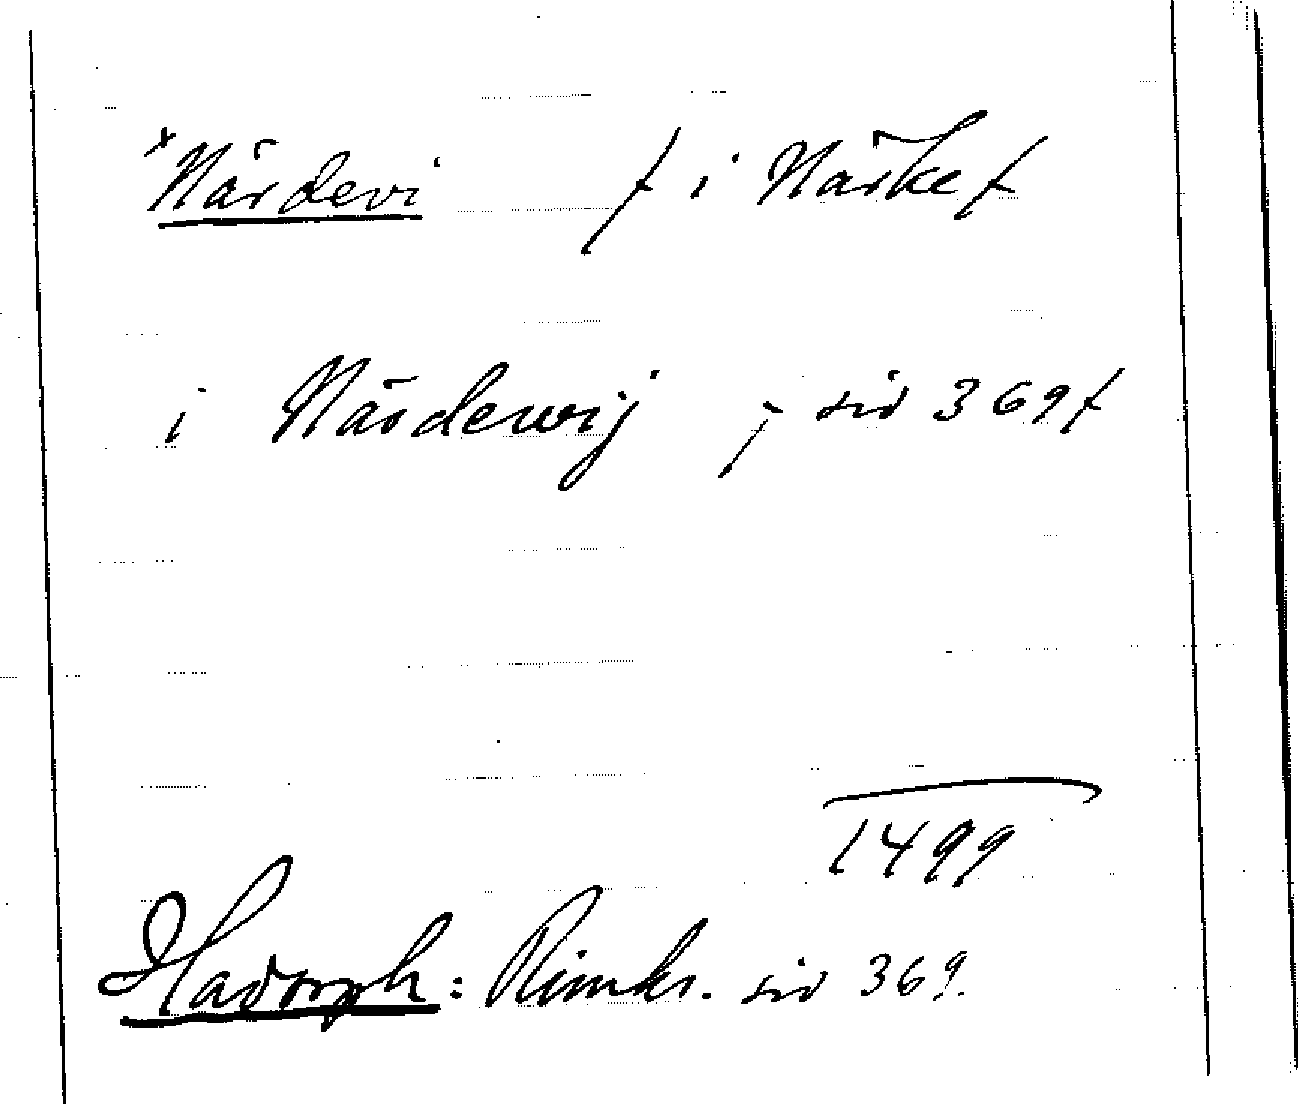 *Närdevi f i Närke f
i Närdewij ; sid 369 f
1499
Hadorph: Rimkr. sid 369.